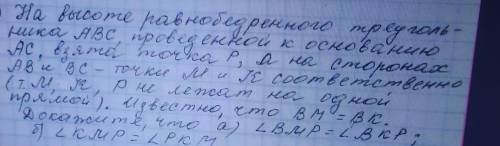 На высоте равнобедренного треуголь-
ника ABC, проведенной к основанию
AC, взята точка P, а на сторонах
AB и BC - точки M и K соответственно
(т. M, K, P не лежат на одной
прямой). Известно, что BM = BK.
Докажите, что а) ∠BMP = ∠BKP;
б) ∠KMP = ∠PKM